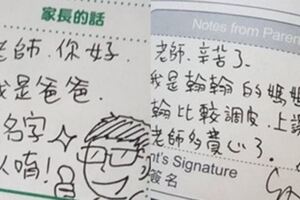 家長的話
老師.你好.
我是爸爸.
名字
人唷!
Notes from Paren
老師.辛苦了.
我是翰翰的媽媽
翰比較調皮.上課
老師多費心了.
nt's Signature
簽名